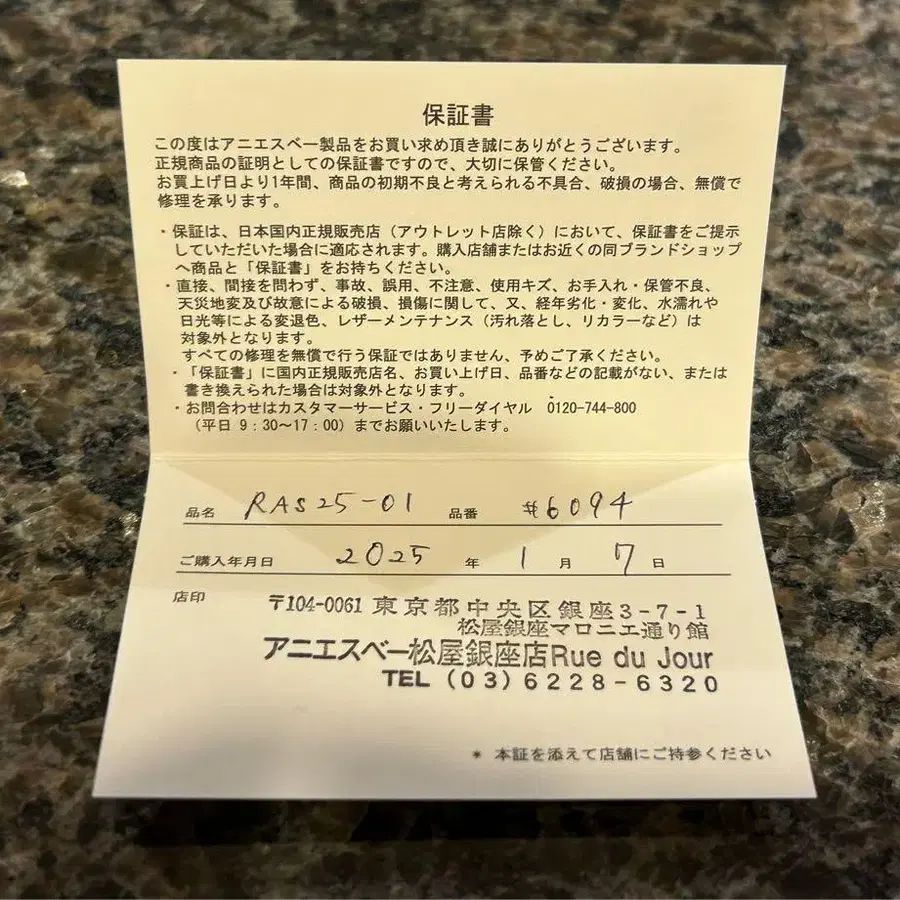 保証書
この度はアニエスベー製品をお買い求め頂き誠にありがとうございます。
正規商品の証明としての保証書ですので、大切に保管ください。
お買上げ日より1年間、商品の初期不良と考えられる不具合、破損の場合、無償で
修理を承ります。
・保証は、日本国内正規販売店（アウトレット店除く）において、保証書をご提示
していただいた場合に適応されます。購入店舗またはお近くの同ブランドショップ
へ商品と「保証書」をお持ちください。
・直接、間接を問わず、事故、誤用、不注意、使用キズ、お手入れ・保管不良、
天災地変及び故意による破損、損傷に関して、又、経年劣化・変化、水濡れや
日光等による変退色、レザーメンテナンス（汚れ落とし、リカラーなど）は
対象外となります。
すべての修理を無償で行う保証ではありません、予めご了承ください。
・「保証書」に国内正規販売店名、お買い上げ日、品番などの記載がない、または
書き換えられた場合は対象外となります。
・お問合わせはカスタマーサービス・フリーダイヤル 0120-744-800
（平日 9：30〜17：00）までお願いいたします。
品名 RAS25-01 品番 #6094
ご購入年月日 2025 年 1 月 7 日
店印 〒104-0061 東京都中央区銀座3-7-1
松屋銀座マロニエ通り館
アニエスベー松屋銀座店Rue du Jour
TEL (03) 6228-6320
* 本証を添えて店舗にご持参ください